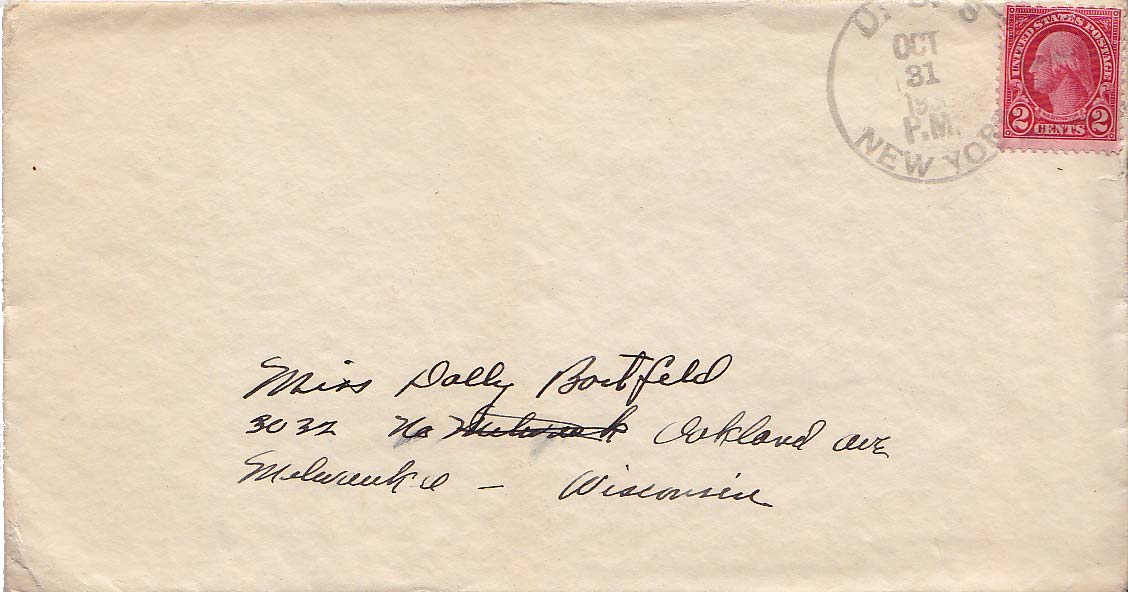 OCT
31
P.M.
NEW YOR
UNITED STATES POSTAGE
WASHINGTON
2 CENTS 2
Miss Dolly Bortfeld
3032 No Oakland Ave
Milwaukee – Wisconsin